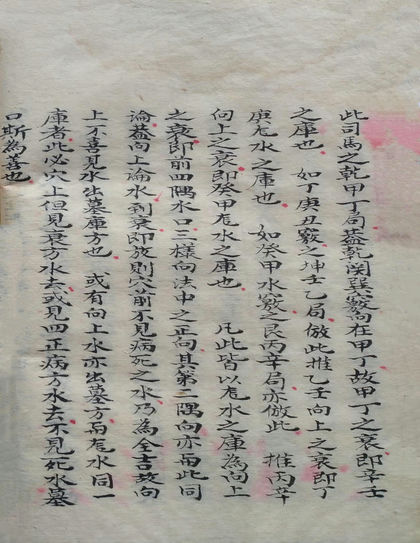 此司馬之乾甲丁局蓋乾関巽竅向在甲丁故甲丁之衰即辛壬
之庫也 如丁庚丑竅之坤壬乙局倣此推乙壬向上之衰即丁
庚尨水之庫也 如癸甲水竅之艮丙辛局亦倣此 推丙辛
向上之衰即癸甲尨水之庫也 凡此皆以尨水之庫為向上
之衰即前四隅水口三樣向法中之正向其第二隅向亦與此同
論蓋向上論水到衰即放則穴前不見病死之水乃為全吉故向
上不喜見水出墓庫方也 或有向上水亦出墓方與尨水同一
庫者此必穴上但見衰方水去或見四正病方水去不見死水墓
口斯為善也